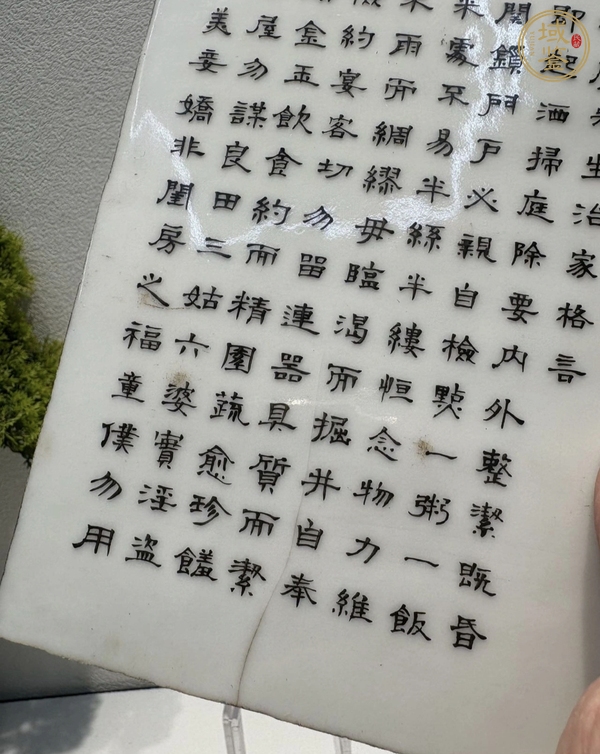 生治家格言
即起洒掃庭除要内外整潔既昏
關鎖門戶必親自檢㸃一粥一飯
來處不易半絲半縷恒念物力維
未雨而綢繆毋臨渴而掘井自奉
儉約宴客切勿留連器具質而潔
金玉飲食約而精園蔬愈珍饈
屋勿謀良田三姑六婆實淫盜
美妾嬌非閨房之福童僕勿用
域鑒